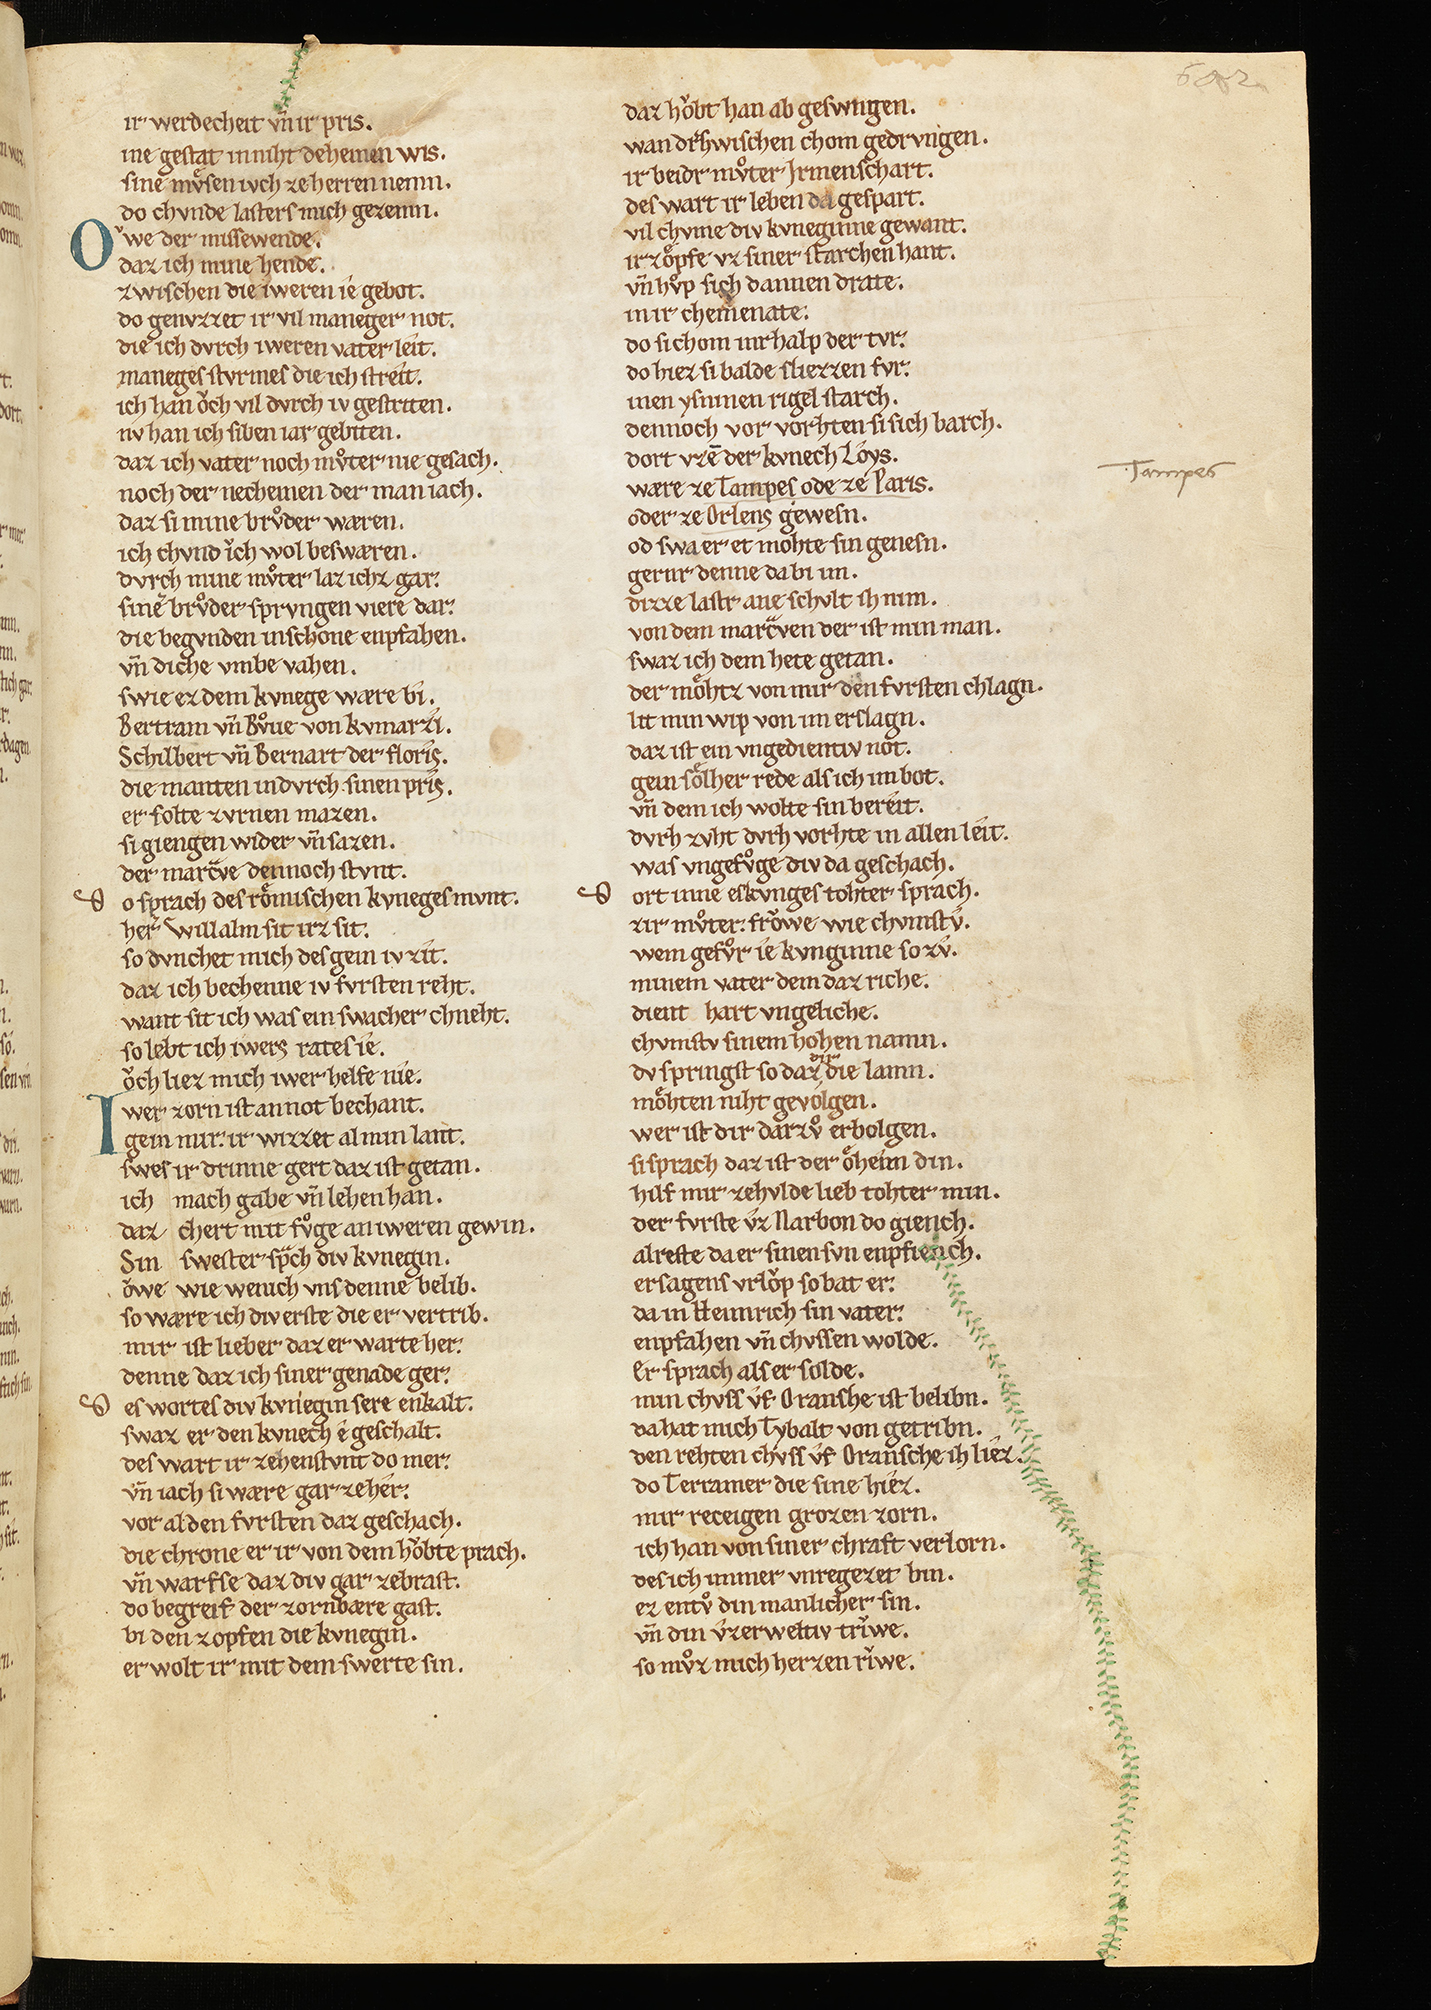 ir werdecheit vn̄ ir pris.
ine gestat in niht deheinen wis.
sine mvͦsen ivch ze herren nemn.
do chvnde lasters mich gezemn.
Oͮwe der missewende.
daz ich mine hende.
zwischen die iweren ie gebot.
do genvzzet ir vil maneger not.
die ich dvrch iweren vater leit.
maneges stvrmes die ich streit.
ich han oͮch vil dvrch iv gestriten.
nv han ich siben iar gebiten.
daz ich vater noch mvͦter nie gesach.
noch der necheinen der man iach.
daz si mine brvͦder wæren.
ich chvnd îch wol beswæren.
dvrch mine mvͦter laz ichz gar.
sine brvͦder sprvngen viere dar.
die begvnden in schone enpfahen.
vn̄ diche vmbe vahen.
swie ez dem kvnege wære bi.
Bertram vn̄ Bvͦue von kvmarzi.
Schilbert vn̄ Bernart der floris.
die manten in dvrch sinen pris.
er solte zvrnen mazen.
si giengen wider vn̄ sazen.
der marcve dennoch stvnt.
do sprach des roͤmischen kvneges mvnt.
her Willalm sit irz sit.
so dvnchet mich des gein iv zit.
daz ich bechenne iv fvrsten reht.
want sit ich was ein swacher chneht.
so lebt ich iwers rates ie.
oͮch liez mich iwer helfe nie.
Iwer zorn ist an not bechant.
gein mir. ir wizzet al min lant.
swes ir drinne gert daz ist getan.
ich mach gabe vn̄ lehen han.
daz chert mit fvͦge an iweren gewin.
Sin swester spͣch div kvnegin.
oͮwe wie wenich vns denne belib.
so wære ich div erste die er vertrib.
mir ist lieber daz er warte her.
denne daz ich siner genade ger.
des wortes div kvnegin sere enkalt.
swaz er den kvnech e geschalt.
des wart ir zehenstvnt do mer.
vn̄ iach si wære gar ze her.
vor al den fvrsten daz geschach.
die chrone er ir von dem hoͮbte prach.
vn̄ warf se daz div gar zebrast.
do begreif der zornbære gast.
bi den zopfen die kvnegin.
er wolt ir mit dem swerte sin.
daz hoͮbt han ab geswngen.
wan dr̄ zwischen chom gedrvngen.
ir beidr mvͦter Irmenschart.
des wart ir leben da gespart.
vil chvme div kvneginne gewant.
ir zoͤpfe vz siner starchen hant.
vn̄ hvͦp sich dannen drate.
in ir chemenate.
do si chom inrhalp der tvr.
do hiez si balde sliezzen fvr.
inen ysninen rigel starch.
dennoch vor vorhten si sich barch.
dort vzē der kvnech Loys.
wære ze Tampes ode ze Paris.
oder ze Orlens gewesn.
od swa er et mohte sin genesn.
gernr denne da bi im.
dizze lastr ane schvlt ih nim.
von dem marcͣven der ist min man.
swaz ich dem hete getan.
der moͤhtz von mir den fvrsten chlagn.
lit min wip von im erslagn.
daz ist ein vngedientiv not.
gein soͤlher rede als ich im bot.
vn̄ dem ich wolte sin bereit.
dvrh zvht dvrh vorhte in allen leit.
was vngefvͦge div da geschach.
dort inne es kvnges tohter sprach.
zir mvͦter. froͮwe wie chvmstv.
wem gefvͦr ie kvnginne so zv.
minem vater dem daz riche.
dient hart vngeliche.
chvmstv sinem hohen namn.
dv springst so daz dir die lamn.
moͤhten niht gevolgen.
wer ist dir darzvͦ erbolgen.
si sprach daz ist der oͤheim din.
hilf mir ze hvlde lieb tohter min.
der fvrste vz Narbon do giench.
alreste da er sinen svn enpfiench.
er sagens vrloͮp so bat er.
da in Heimrich sin vater.
enpfahen vn̄ chvssen wolde.
Er sprach als er solde.
min chvss vf Oranshe ist belibn.
da hat mich Tybalt von getribn.
den rehten chvss vf Oransche ih liez.
do Terramer die sine hiez.
mir receigen grozen zorn.
ich han von siner chraft verlorn.
des ich immer vnregezet bin.
ez entvͦ din manlicher sin.
vn̄ din vzerweltiv triwe.
so mvͦz mich herzen riwe.
Tampes